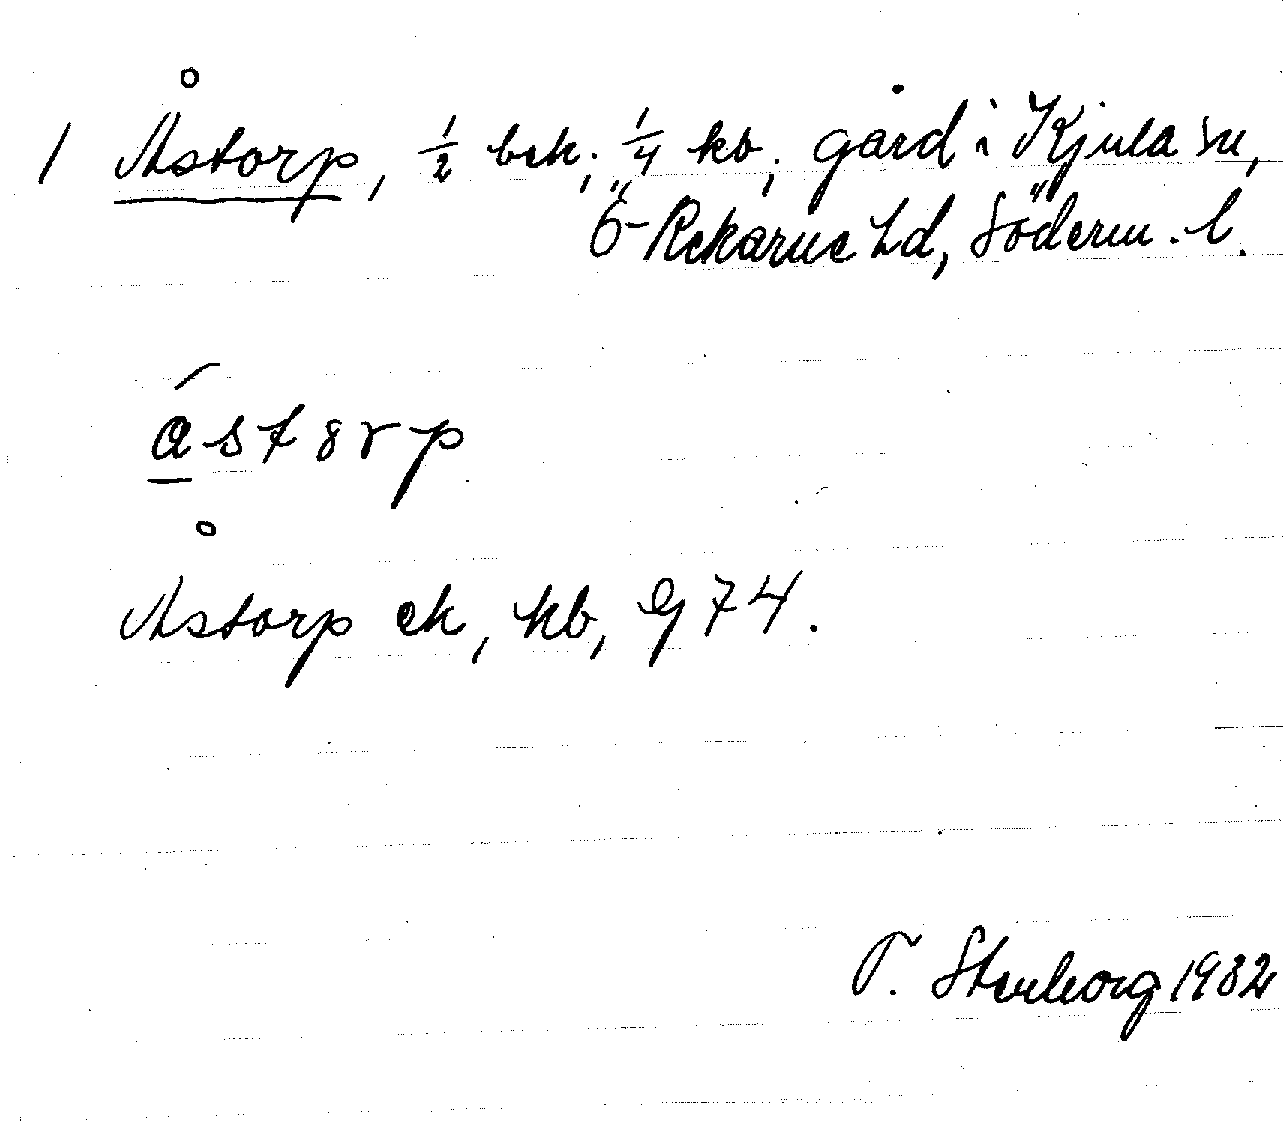 1 Åstorp, 1/2 bek; 1/4 kb; gård i Kjula sn,
Ö-Rekarne hd, Söderm. l.
åst8rp
Åstorp ek, kb, G 74.
T. Stenborg 1932